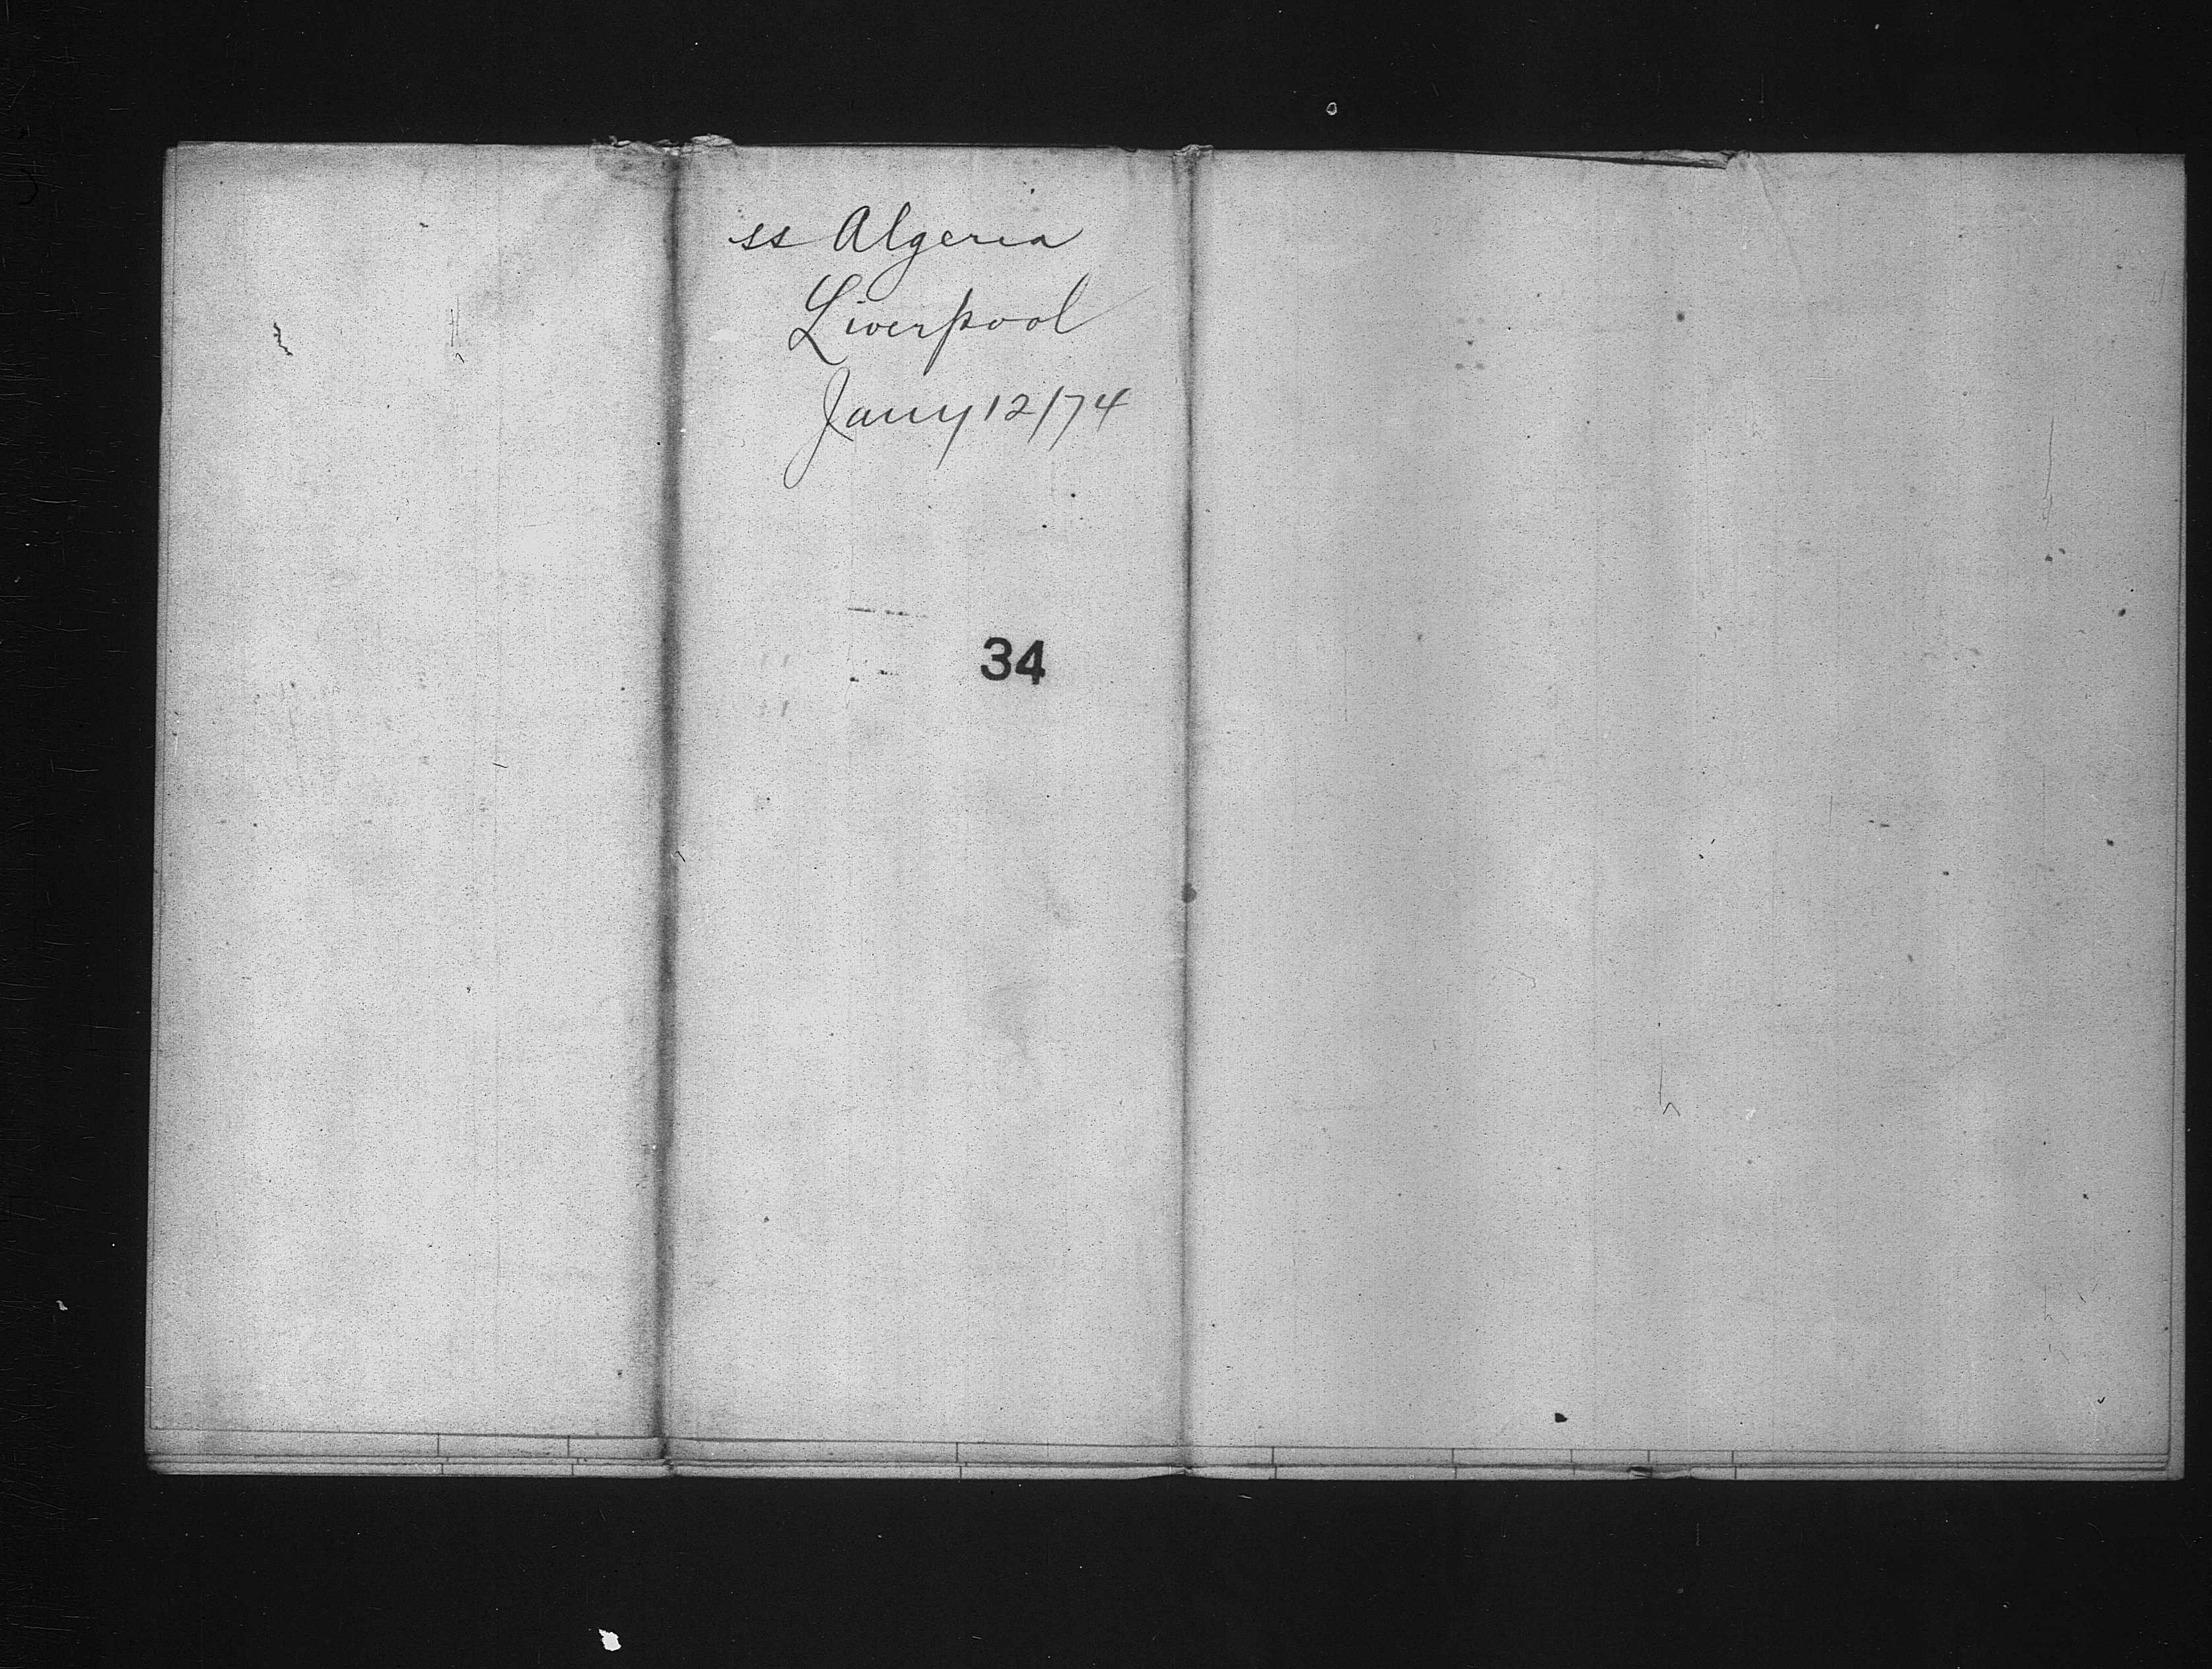 ss Algeria
Liverpool
Jany 12/74
34